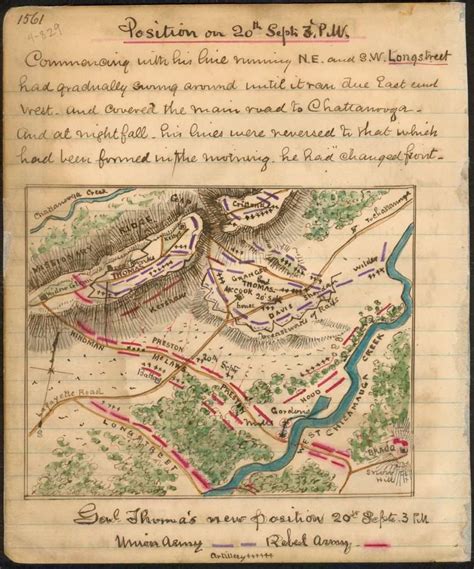 1561
4-829
Position on 20th Sept. 3 P.M.
Commencing with his line running N.E. and S.W. Longstreet
had gradually swung around until it ran due East and
West. and covered the main road to Chattanooga.
And at nightfall. his lines were reversed to that which
had been formed in the morning. he had changed front.
Chattanooga Creek
MISSIONARY RIDGE
THOMAS
GRANGER
and
THOMAS
McCOOK 20th
DAVIS
Wilder
breastworks of logs
to Chattanooga
HINDMAN
PRESTON
McLAWS
20th Sept.
LaFayette Road
LONGSTREET
HOOD
Gordons
Mill
WEST CHICKAMAUGA CREEK
BRAGG
Genl. Thomas's new position 20th Sept. 3 P.M
Union Army
Rebel Army
Artillery